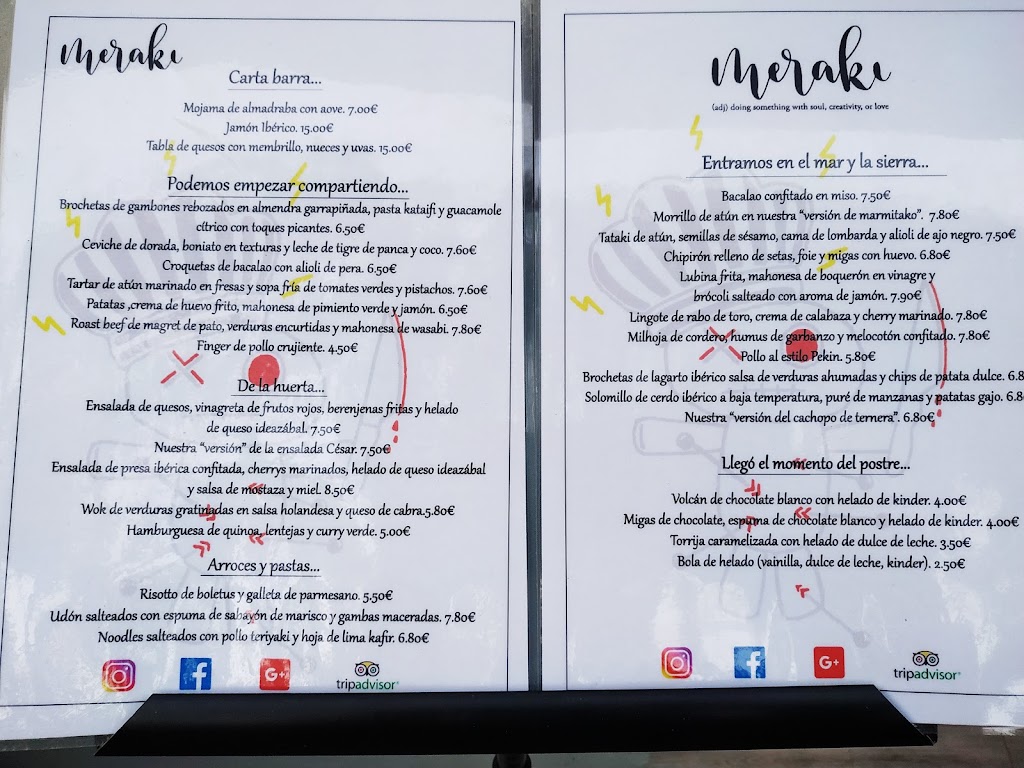 meraki
Carta barra...
Mojama de almadraba con aove. 7.00€
Jamón Ibérico. 15.00€
Tabla de quesos con membrillo, nueces y uvas. 15.00€
Podemos empezar compartiendo...
Brochetas de gambones rebozados en almendra garrapiñada, pasta kataifi y guacamole
cítrico con toques picantes. 6.50€
Ceviche de dorada, boniato en texturas y leche de tigre de panca y coco. 7.60€
Croquetas de bacalao con alioli de pera. 6.50€
Tartar de atún marinado en fresas y sopa fría de tomates verdes y pistachos. 7.60€
Patatas ,crema de huevo frito, mahonesa de pimiento verde y jamón. 6.50€
Roast beef de magret de pato, verduras encurtidas y mahonesa de wasabi. 7.80€
Finger de pollo crujiente. 4.50€
De la huerta...
Ensalada de quesos, vinagreta de frutos rojos, berenjenas fritas y helado
de queso ideazábal. 7.50€
Nuestra "versión" de la ensalada César. 7.50€
Ensalada de presa ibérica confitada, cherrys marinados, helado de queso ideazábal
y salsa de mostaza y miel. 8.50€
Wok de verduras gratinadas en salsa holandesa y queso de cabra.5.80€
Hamburguesa de quinoa, lentejas y curry verde. 5.00€
Arroces y pastas...
Risotto de boletus y galleta de parmesano. 5.50€
Udón salteados con espuma de sabayón de marisco y gambas maceradas. 7.80€
Noodles salteados con pollo teriyaki y hoja de lima kafir. 6.80€
f G+ tripadvisor
meraki
(adj) doing something with soul, creativity, or love
Entramos en el mar y la sierra...
Bacalao confitado en miso. 7.50€
Morrillo de atún en nuestra "versión de marmitako". 7.80€
Tataki de atún, semillas de sésamo, cama de lombarda y alioli de ajo negro. 7.50€
Chipirón relleno de setas, foie y migas con huevo. 6.80€
Lubina frita, mahonesa de boquerón en vinagre y
brócoli salteado con aroma de jamón. 7.90€
Lingote de rabo de toro, crema de calabaza y cherry marinado. 7.80€
Milhoja de cordero, humus de garbanzo y melocotón confitado. 7.80€
Pollo al estilo Pekin. 5.80€
Brochetas de lagarto ibérico salsa de verduras ahumadas y chips de patata dulce. 6.8
Solomillo de cerdo ibérico a baja temperatura, puré de manzanas y patatas gajo. 6.8
Nuestra "versión del cachopo de ternera". 6.80€
Llegó el momento del postre...
Volcán de chocolate blanco con helado de kinder. 4.00€
Migas de chocolate, espuma de chocolate blanco y helado de kinder. 4.00€
Torrija caramelizada con helado de dulce de leche. 3.50€
Bola de helado (vainilla, dulce de leche, kinder). 2.50€
f G+ tripadvisor